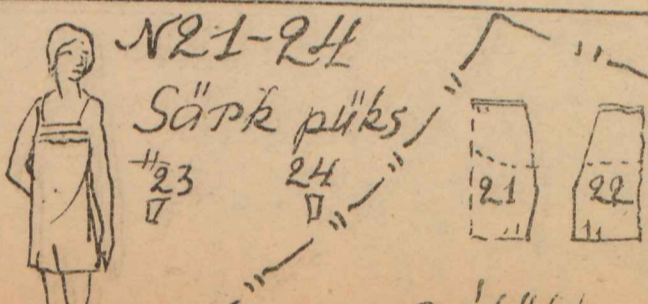 №21-24
Särk püks
23 24
21 22